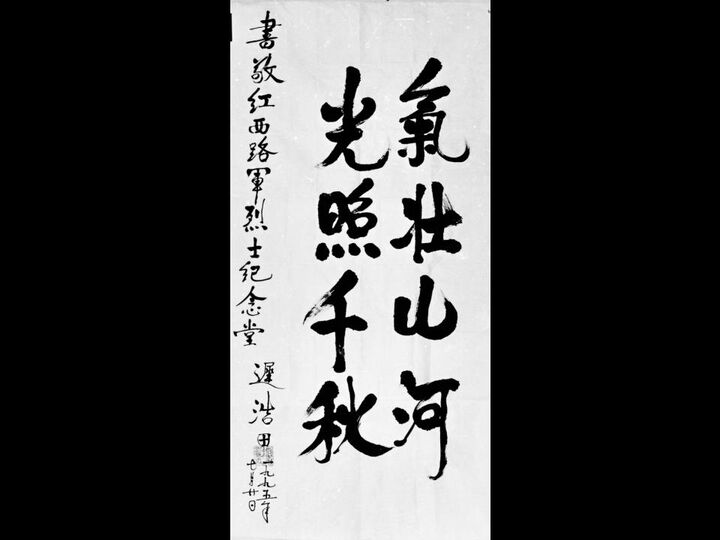 氣壯山河
光照千秋
書敬红西路軍烈士纪念堂 遲浩田
一九九五年
七月廿日